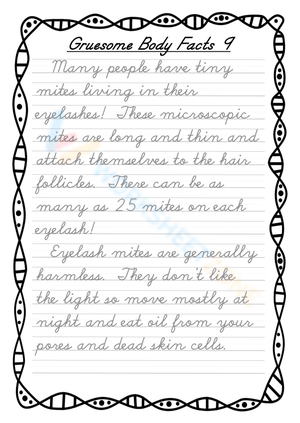 Gruesome Body Facts 9
Many people have tiny
mites living in their
eyelashes! These microscopic
mite are long and thin and
attach themselves to the hair
follicles. There can be as
many as 25 mites on each
eyelash!
Eyelash mites are generally
harmless. They don't like
the light so move mostly at
night and eat oil from your
pores and dead skin cells.